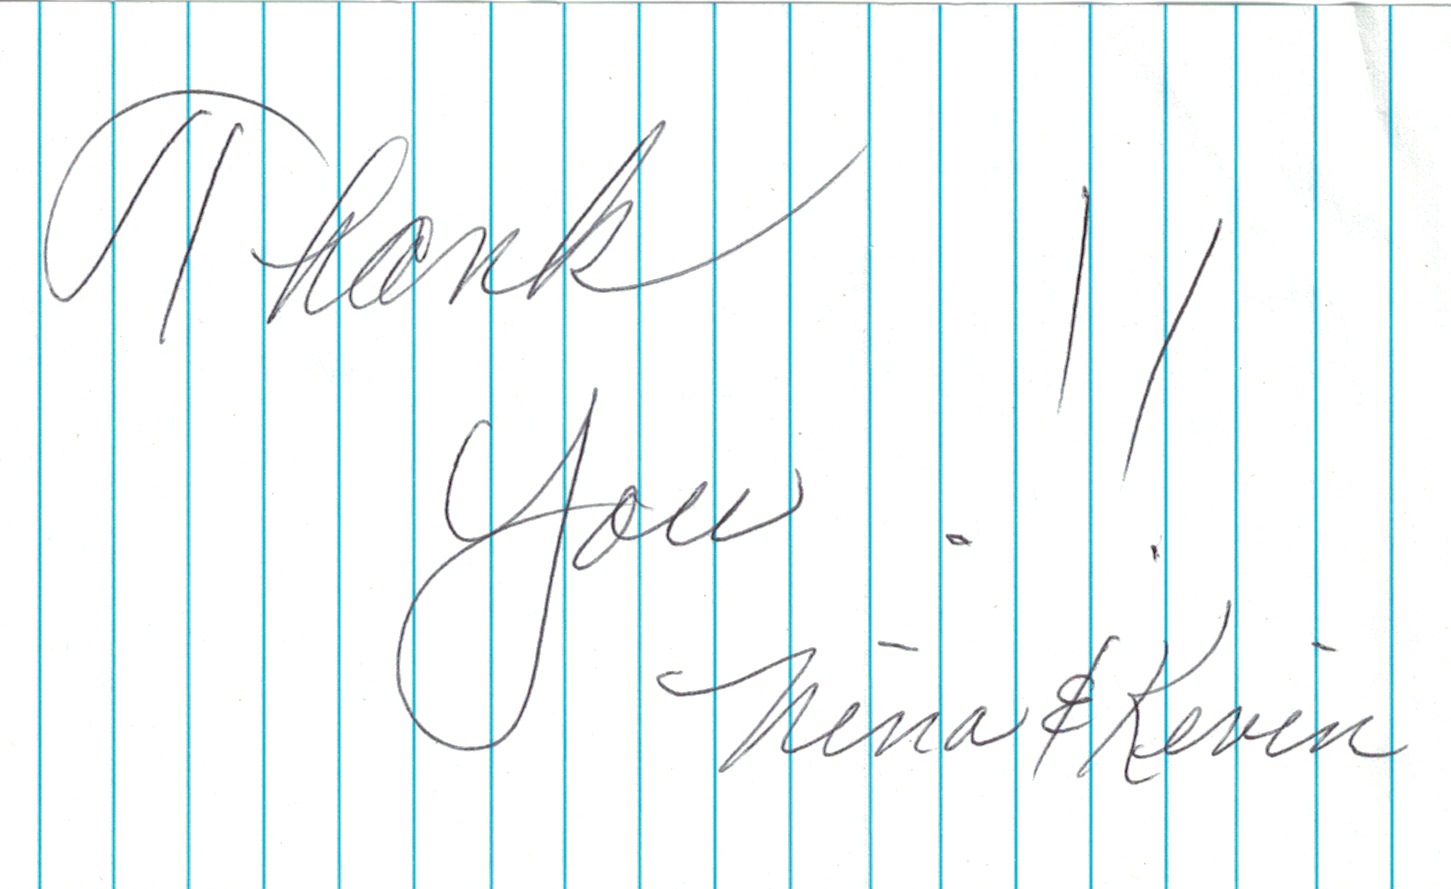 Thank
You !!
Nina & Kevin